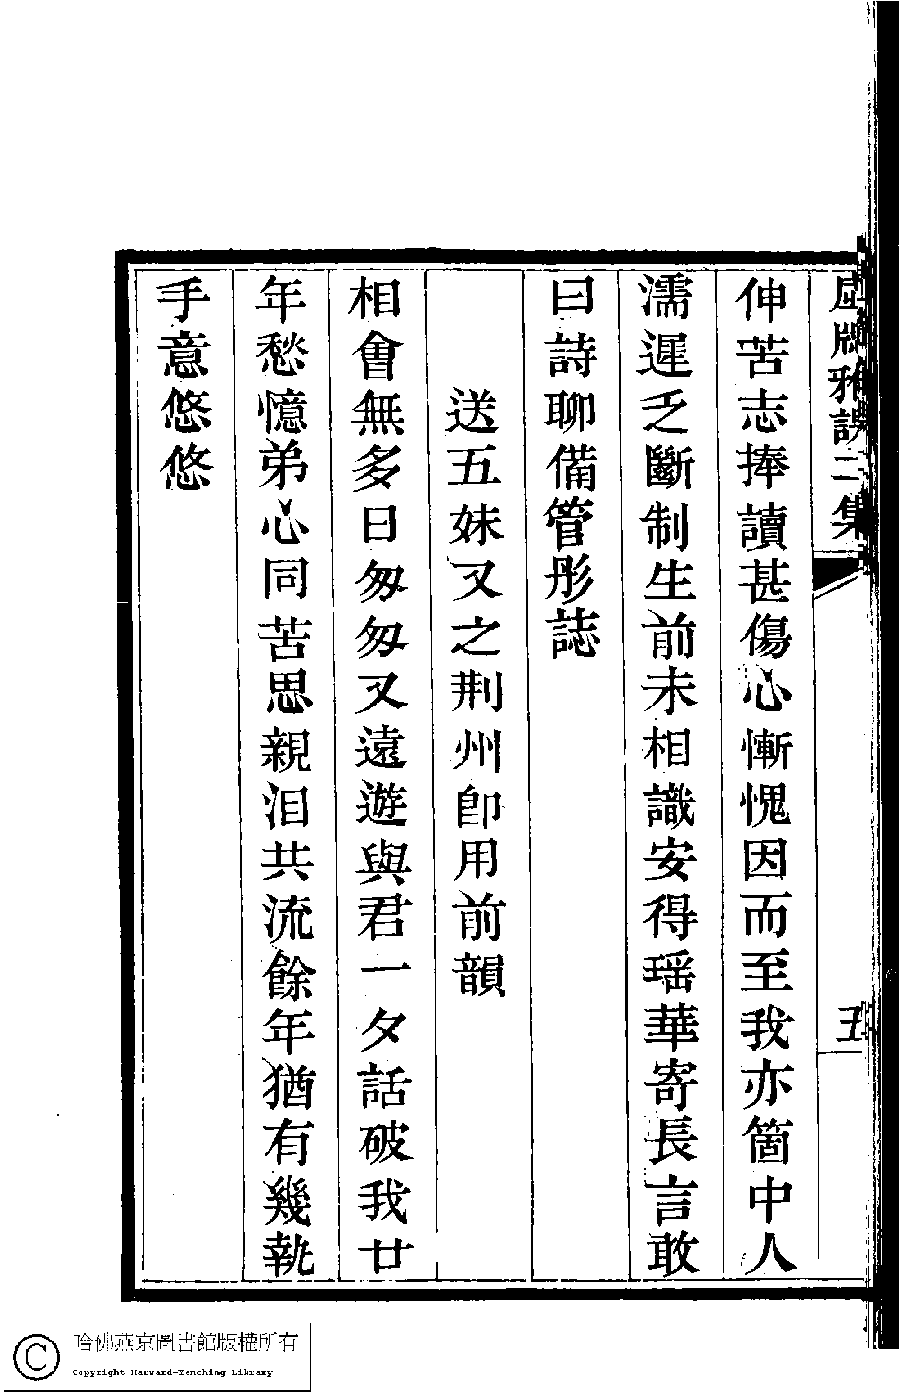 伸苦志捧讀甚傷心慚愧因而至我亦箇中人
濡遲乏斷制生前未相識安得瑶華寄長言敢
曰詩聊備管彤誌
送五妹又之荆州卽用前韻
相會無多日匆匆又遠遊與君一夕話破我廿
年愁憶弟心同苦思親泪共流餘年猶有幾執
手意悠悠
雅
二集
五
哈佛燕京圖書館版權所有
Copyright Harvard-Yenching Library